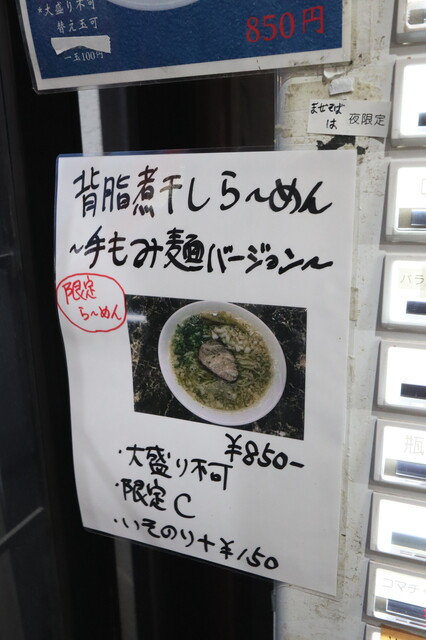 *大盛り不可
替え玉可
一玉100円
850円
まぜそば
は
夜限定
背脂煮干しら〜めん
〜手もみ麺バージョン〜
限定
ら〜めん
¥850-
・大盛り不可
・限定C
・いそのり+¥150
バラ
瓶
コマチ